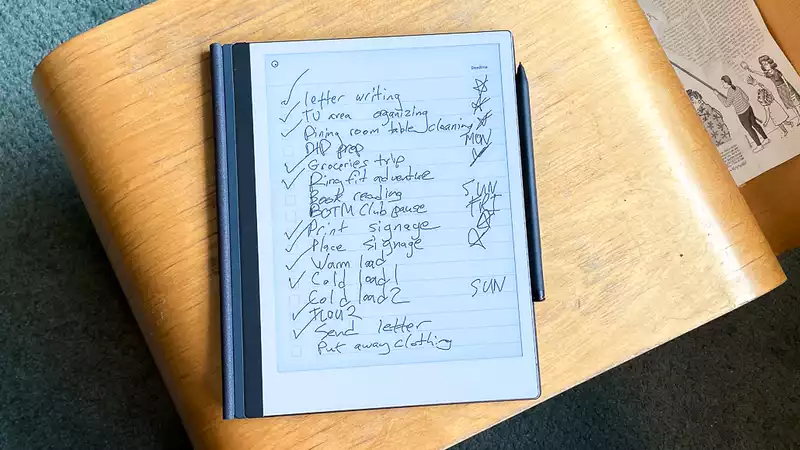 Deadline
letter writing
TV area organizing
Dining room table cleaning
DTD prep MON
Groceries trip
Ring fit adventure
Book reading SUN
BOTM Club pause FRI
Print signage
Place signage
Warm load
Cold load 1
Cold load 2 SUN
TLOU2
Send letter
Put away clothing